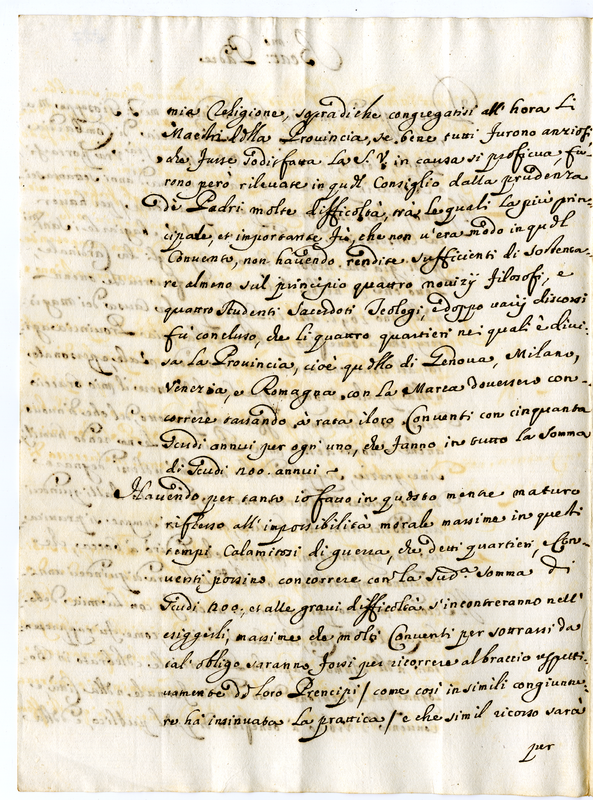 mia Religione, sopradiche congregatisi all' hora li
Maestri della Provincia, se bene tutti furono anziosi
che fusse sodisfatta la S. V. in causa si proficua, fu-
rono però rilevate in quel Consiglio dalla prudenza
de Padri molte difficoltà, trà le quali la più prin-
cipale, et importante fù, che non v'era modo in quel
Convento, non havendo rendite sufficienti di sostenta-
re almeno sul principio quattro novizij filosofi, e
quattro studenti Sacerdoti Teologi, e doppo varij discorsi
fù concluso, che li quattro quartieri nei quali è divi-
sa la Provincia, cioe quello di Genova, Milano,
Venezia, e Romagna con la Marca dovessero con-
correre tassando à rata i loro Conventi con cinquanta
scudi annui per ogni uno, che fanno in tutto la somma
di scudi 200. annui
Havendo per tanto io fatto in questo mentre maturo
riflesso all' impossibilità morale massime in questi
tempi calamitosi di guerra, che detti quartieri, e Con-
venti possino concorrere con la sud.a somma di
scudi 200, et alle gravi difficoltà s'incontreranno nell'
esiggerli, massime che molti Conventi per sottrarsi da
tal' obligo saranno forsi per ricorrere al braccio rispetti-
vamente de loro Prencipi / come così in simili congiuntu-
re ha' insinuata la prattica / e che simil ricorso sarà
per